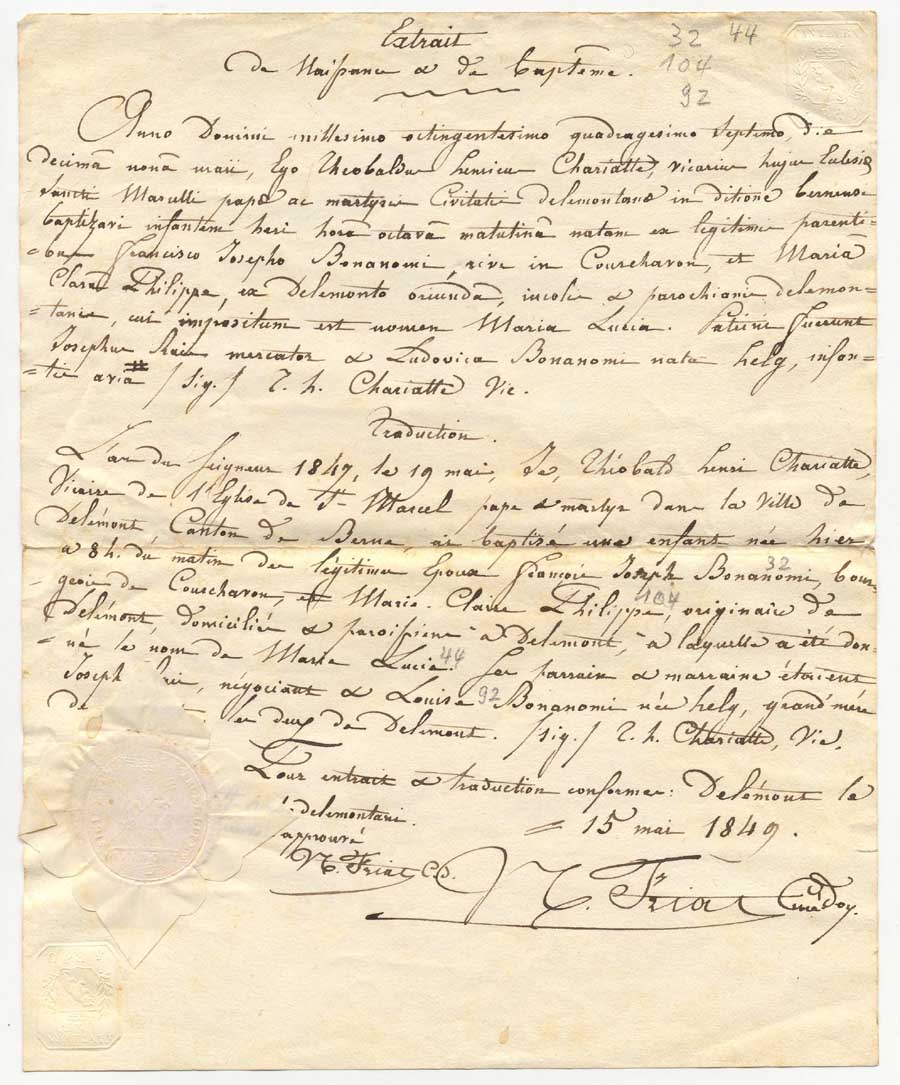 Extrait
de Naissance & de Baptême.
32 44
104
92
Anno Domini millesimo octingentesimo quadragesimo septimo, die
decimâ nonâ maii, Ego Theobaldus henricus Chariatte, vicarius hujus Eclesiæ
Sancti Marcelli papæ ac martyris Civitatis delemontanæ in ditione bernensi
baptizavi infantem heri horâ octavâ matutinâ natam ex legitimis parenti-
-bus Francisco Josepho Bonanomi, cive in Courchavon, et Maria
Clara Philippe, ex Delemonto oriundâ, incolis & parochianis delemon-
-tanis, cui impositum est nomen Maria Lucia. Patrini fuerunt
Josephus mercator & Ludovica Bonanomi nata helg, infan-
-tis avia /sig./ T. h. Chariatte Vic.
Traduction.
L'an du Seigneur 1847, le 19 mai, Je, Théobald henri Chariatte,
Vicaire de l'Eglise de St Marcel pape & martyr dans la Ville de
Delémont Canton de Berne, ai baptisé une enfant née hier
à 8 h. du matin des légitimes Epoux François Joseph Bonanomi, 32 bour-
geois de Courchavon, et Marie-Claire Philippe, 104 originaire de
Delémont, domiciliés & paroissiens à Delemont, à laquelle a été don-
-né le nom de Marie Lucie. 44 Ses parrain & marraine étoient
Joseph négociant & Louise 92 Bonanomi née helg, grand'mère
de les deux de Delemont. /sig./ T. h. Chariatte, Vic.
Pour extrait & traduction conformes: Delémont le
= 15 mai 1849.
delemontani.
approuvé
N. Friat C.D.
N. Friat Curé Doy.